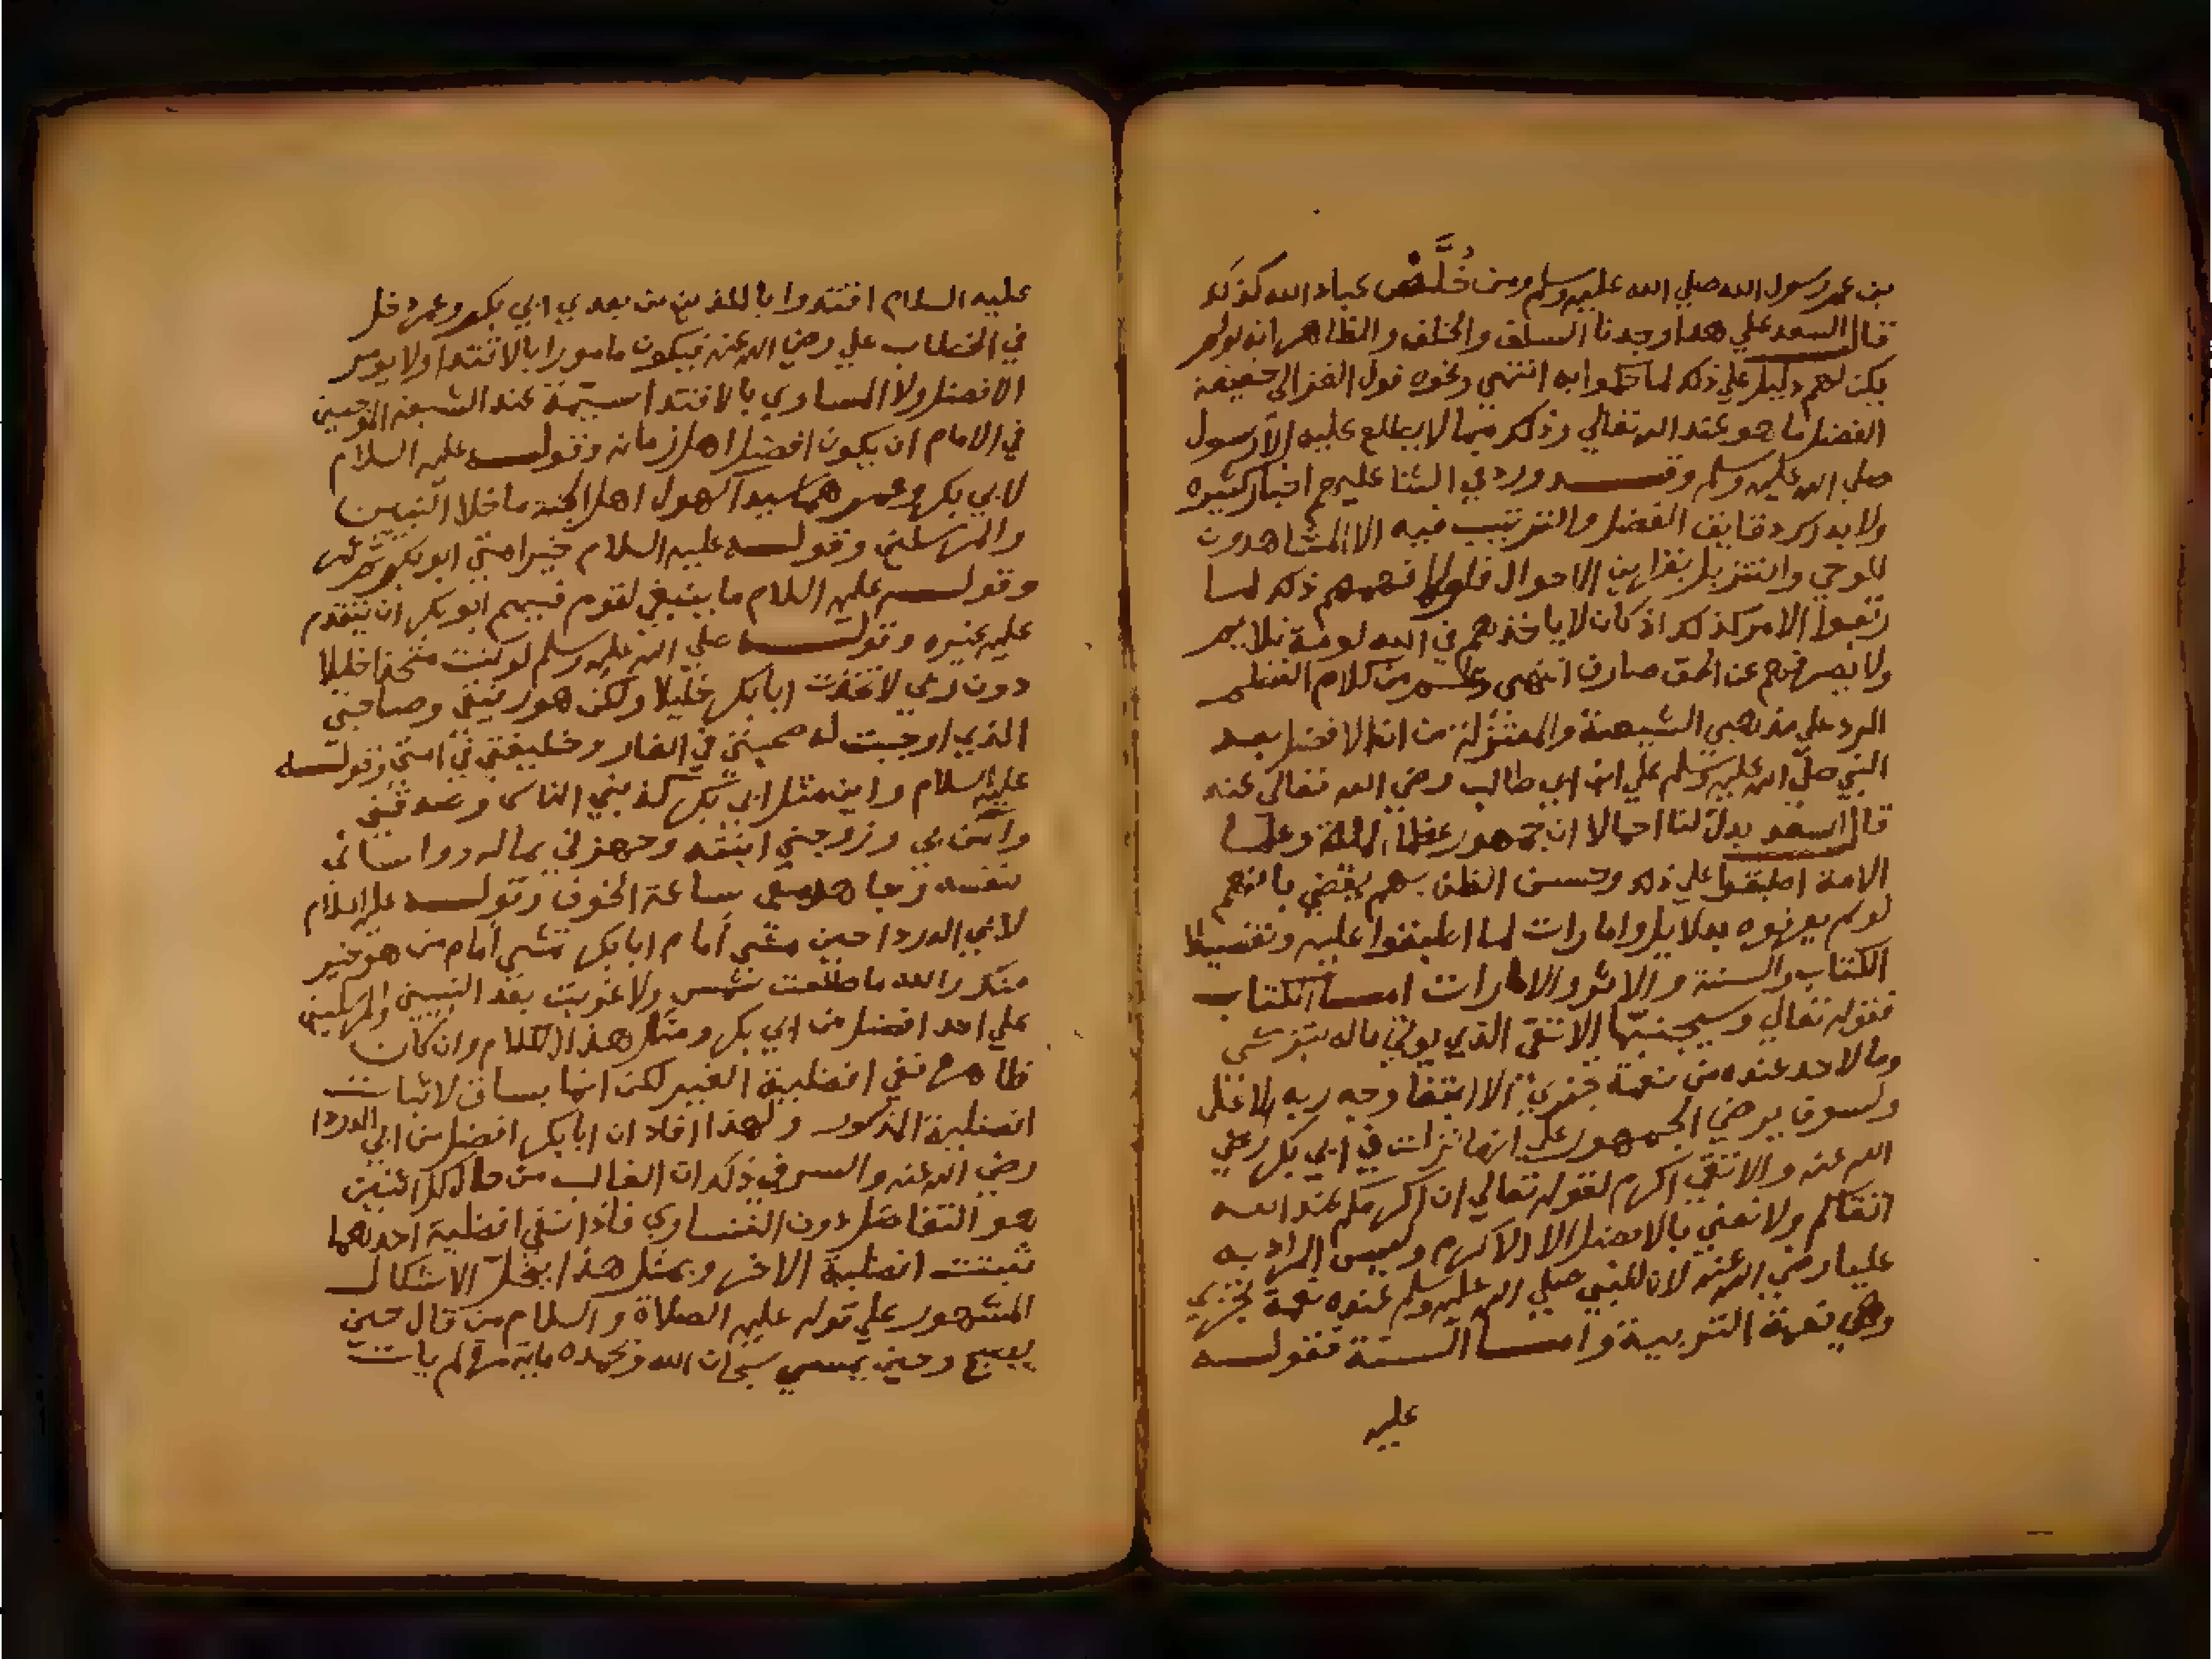 بن عمر رسول الله صلي الله عليه وسلم ومن خُلَّص عباد الله كذلك
قال السعد علي هذا وجدنا السلف والخلف والظاهر انه لو لم
يكن لهم دليل علي ذلك لما حكموا به انتهي ونحوه قول الغزالي حقيقة
الفضل ما هو عند الله تعالي وذلك مما لا يطلع عليه الا رسول
صلي الله عليه وسلم وقد ورد في الثنا عليهم اخبار كثيره
ولا يدرك دقايق الفضل والترتيب فيه الا المشاهدون
للوحي والتنزيل بقراين الاحوال فلولا فهمهم ذلك لما
رتبوا الامر كذلك اذ كان لا ياخذهم في الله لومة لايم
ولا يصرفهم عن الحق صارف انتهي وعلم من كلام الناظم
الرد علي مذهبي الشيعة والمعتزلة من ان الافضل بعد
النبي صلي الله عليه وسلم علي ابن ابي طالب رضي الله تعالي عنه
قال السعد يدل لنا اجمالا ان جمهور عظما الملة وعلما
الامة اطبقوا علي ذلك وحسن الظن بهم يقضي بانهم
لو لم يعرفوه بدلايل وامارات لما اطبقوا عليه وتفصيلا
الكتاب والسنة والاثر والامارات امــا الكتاب
فقوله تعالي وسيجنبها الاتقي الذي يوتي ماله يتزكي
وما لاحد عنده من نعمة تجزي الا ابتغا وجه ربه الاعلي
ولسوف يرضي الجمهور علي انها نزلت في ابي بكر رضي
الله عنه والاتقي اكرم لقوله تعالي ان اكرمكم عند الله
اتقاكم ولا نعني بالافضل الا الاكرم وليس المراد به
عليا رضي الله عنه لان للنبي صلي الله عليه وسلم عنده نعمة تجزي
وهي نعمة التربية وامــا السنة فقوله
عليه
عليه السلام اقتدوا باللذين من بعدي ابي بكر وعمر دخل
في الخطاب علي رضي الله عنه فيكون مامورا بالاقتدا ولا يومر
الافضل ولا المساوي بالاقتدا سيمة عند الشيعة الموجبين
في الامام ان يكون افضل اهل زمانه وقوله عليه السلام
لابي بكر وعمر هما سيدا كهول اهل الجنة ما خلا النبيين
والمرسلين وقوله عليه السلام خير امتي ابو بكر ثم عمر
وقوله عليه السلام ما ينبغي لقوم فيهم ابو بكر ان يتقدم
عليه غيره وقوله صلي الله عليه وسلم لو كنت متخذا خليلا
دون ربي لاتخذت ابا بكر خليلا ولكن هو رفيقي وصاحبي
الذي اوجبت له صحبتي في الغار وخليفتي في امتي وقوله
عليه السلام واين مثل ابي بكر كذبني الناس وصدقني
وآمن بي وزوجني ابنته وجهزني بماله وواساني
بنفسه وجاهد معي ساعة الخوف وقوله عليه السلام
لابي الدردا حين مشي أمام ابا بكر تمشي أمام من هو خير
منك والله ما طلعت شمس ولا غربت بعد النبيين والمرسلين
علي احد افضل من ابي بكر ومثل هذا الكلام وان كان
ظاهره نفي افضلية الغير لكن انما يساق لاثبات
افضلية المذكور ولهذا افاد ان ابا بكر افضل من ابي الدردا
رضي الله عنه والسر في ذلك ان الغالب من حال كل اثنين
هو التفاضل دون التساوي فاذا انتفي افضلية احدهما
ثبتت افضلية الاخر وبمثل هذا ينحل الاشكال
المشهور علي قوله عليه الصلاة والسلام من قال حين
يصبح وحين يمسي سبحان الله وبحمده ماية مرة لم يات